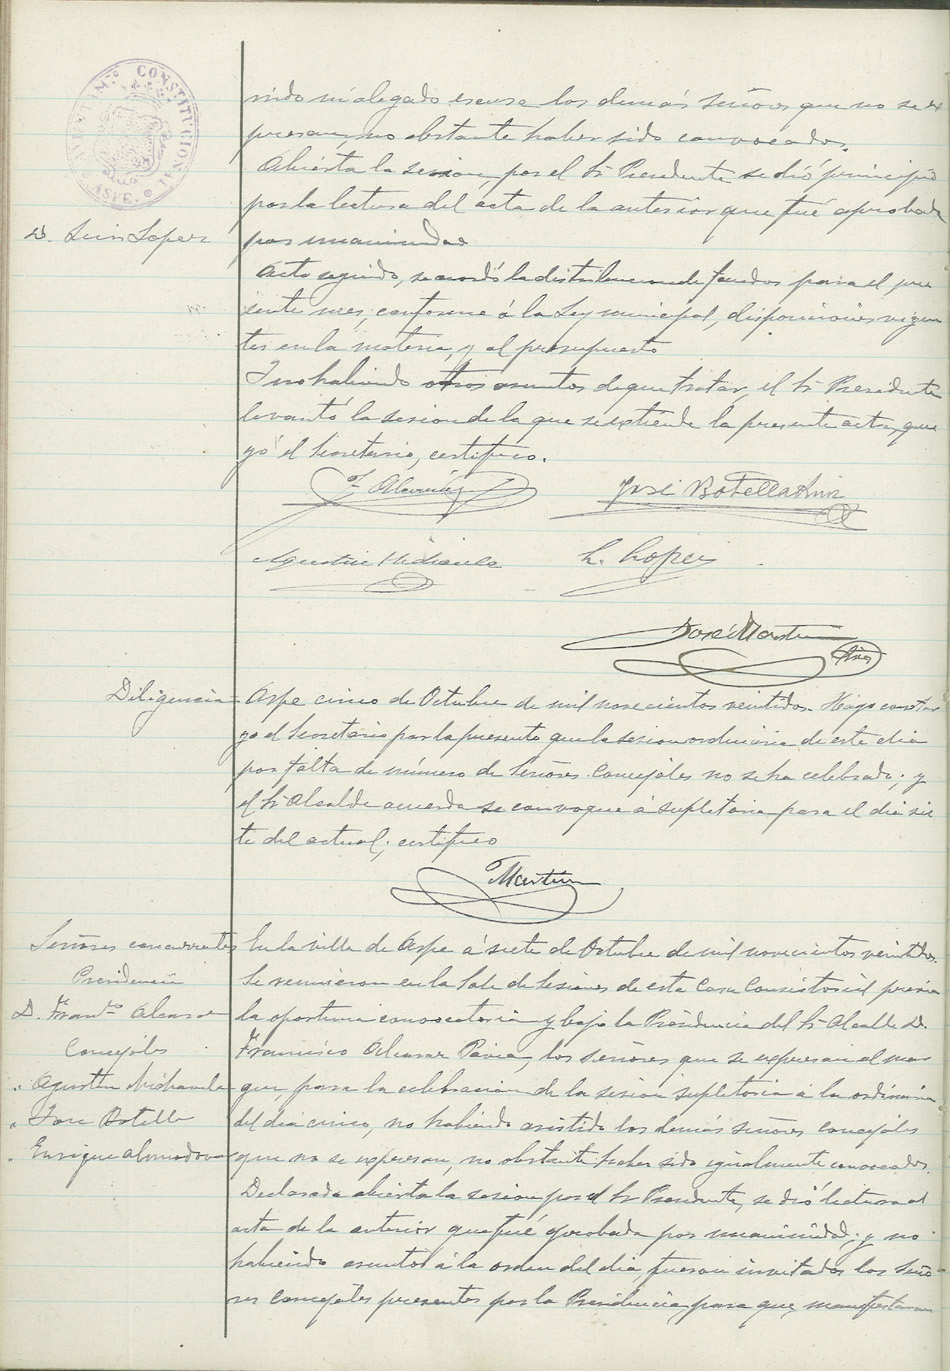 AYUNTAM.TO CONSTITUCIONAL
ASPE.
nido ni alegado escusa los demás señores que no se ex
presan, no obstante haber sido convocados.
Abierta la sesion, por el Sr Presidente se dió principio
por la lectura del acta de la anterior que fué aprobada
D. Luis Lopez
por unanimidad
Acto seguido, se acordó la distribucion de fondos para el pre
sente mes, conforme á la Ley municipal, disposiciones vigen
tes en la materia, y al presupuesto
Y no habiendo otros asuntos de que tratar, el Sr Presidente
levantó la sesion de la que se extiende la presente acta, que
yó el Secretario, certifico.
José Botella Ruiz
Agustin Michavila
L. Lopez
José Martin
Diligencia
Aspe cinco de Octubre de mil novecientos veintidos. Hago constar
yo el Secretario por la presente que la sesion ordinaria de este dia
por falta de número de Señores Concejales no se ha celebrado; y
el Sr Alcalde acuerda se convoque á supletoria para el dia sie
te del actual; certifico
Martin
Señores concurrentes
Presidencia
D. Fran.co Alcaraz
Concejales
" Agustin Michavila
" Jose Botella
" Enrique Almodovar
En la villa de Aspe á siete de Octubre de mil novecientos veintidos.
Se reunieron en la Sala de Sesiones de esta Casa Consistorial previa
la oportuna convocatoria y bajo la Presidencia del Sr Alcalde D.
Francisco Alcaraz Pavia, los señores que se expresan al mar
gen, para la celebracion de la sesion supletoria á la ordinaria
del dia cinco, no habiendo asistido los demás señores concejales
que no se expresan, no obstante haber sido igualmente convocados.
Declarada abierta la sesion por el Sr Presidente, se dió lectura al
acta de la anterior que fué aprobada por unanimidad; y no
habiendo asuntos á la orden del dia, fueron invitados los Seño
res Concejales presentes por la Presidencia, para que manifestaran